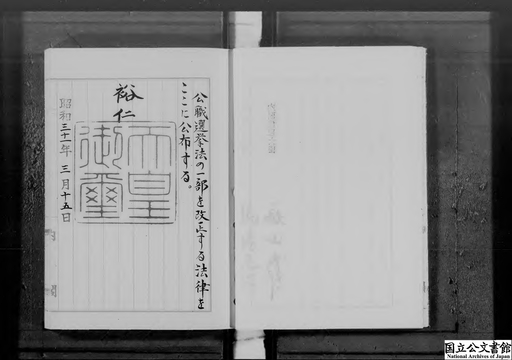 公職選挙法の一部を改正する法律を
ここに公布する。
裕仁
天皇
御璽
昭和三十一年三月十五日
国立公文書館
National Archives of Japan